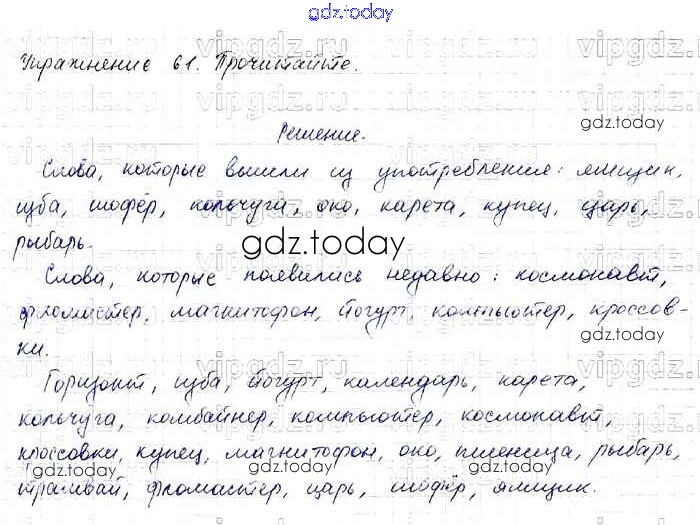 gdz.today
Упражнение 61. Прочитайте.
gdz.today
Решение.
Слова, которые вышли из употребления: ямщик,
изба, шофёр, кольчуга, око, карета, купец, царь,
рыбарь.
gdz.today
Слова, которые появились недавно: космонавт,
фломастер, магнитофон, йогурт, компьютер, кроссов-
ки.
Горизонт, изба, йогурт, календарь, карета,
кольчуга, комбайнер, компьютер, космонавт,
кроссовки, купец, магнитофон, око, пшеница, рыбарь,
gdz.today gdz.today gdz.today
трамвай, фломастер, царь, шофёр, ямщик.